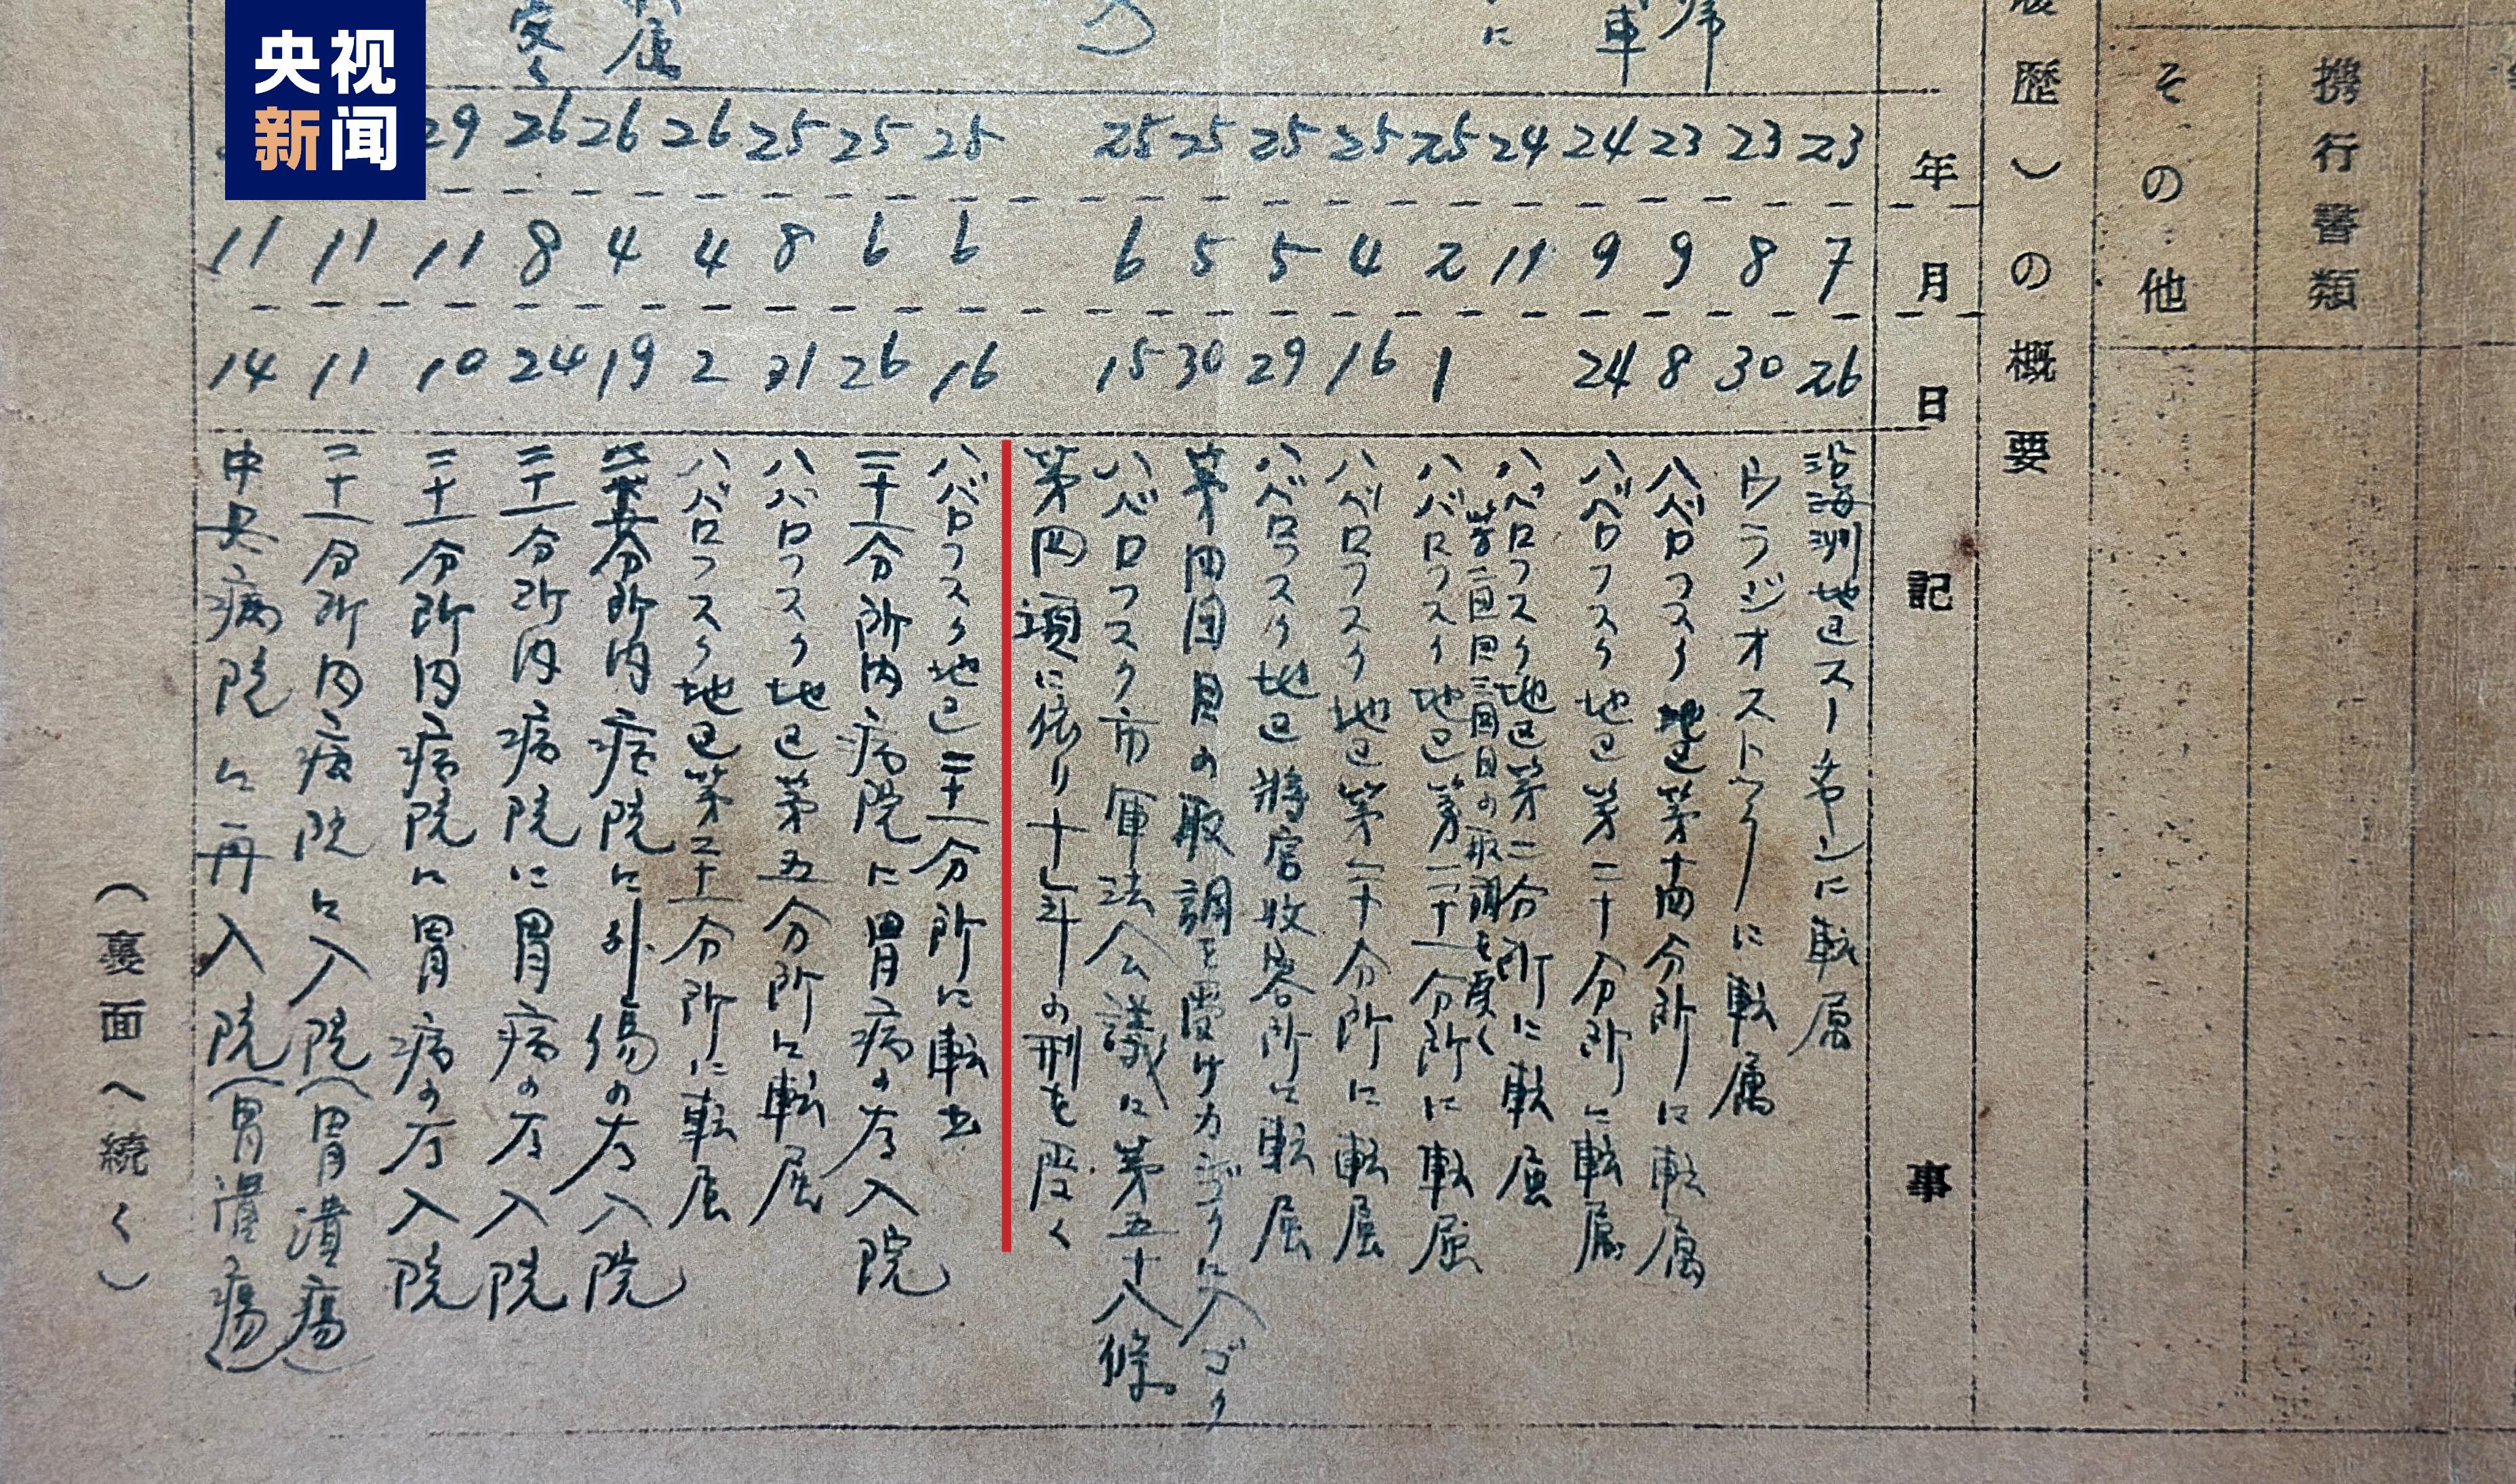 央视
新闻
携行書類
その他
歴)の概要
年月日
記事
23 7 26 沿海州地区スーチャンに転属
23 8 30 ウラジオストックに転属
23 9 8 ハバロフスク地区第十四分所に転属
24 9 24 ハバロフスク地区第二十分所に転属
24 11 ハバロフスク地区第二分所に転属
第二回三回目の取調を受く
25 2 1 ハバロフスク地区第二十一分所に転属
25 4 16 ハバロフスク地区第二十分所に転属
25 5 29 ハバロフスク地区将官收容所に転属
25 5 30 第四回目の取調を受けカンゴクに入ゴク
25 6 15 ハバロフスク市軍法会議に第五十八條
第四項に依り十年の刑を受く
25 6 16 ハバロフスク地区二十一分所に転出
25 6 26 二十一分所内病院に胃病の為入院
25 8 31 ハバロフスク地区第五分所に転属
26 4 2 ハバロフスク地区第二十一分所に転属
26 4 19 分所内病院に外傷の為入院
26 8 24 二十一分所内病院に胃病の為入院
29 11 10 二十一分所内病院に胃病の為入院
11 11 二十一分所内病院に入院(胃潰瘍)
11 14 中央病院に再入院(胃潰瘍)
(裏面へ続く)